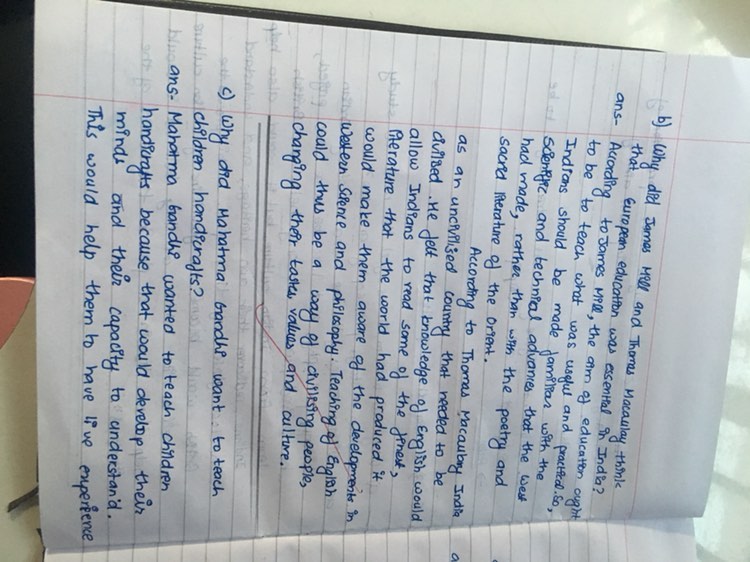 b) Why did James Mill and Thomas Macaulay think
that European education was essential in India?
ans- According to James Mill, the aim of education ought
to be to teach what was useful and practical. So,
Indians should be made familiar with the
scientific and technical advances that the west
had made, rather than with the poetry and
sacred literature of the orient.
According to Thomas Macaulay India
as an uncivilised country that needed to be
civilised. He felt that knowledge of English would
allow Indians to read some of the finest,
literature that the world had produced it
would make them aware of the developments in
Western Science and philosophy. Teaching of English
could thus be a way of civilising people,
changing their tastes, values and culture.
c) Why did Mahatma Gandhi want to teach
children handicrafts?
ans- Mahatma Gandhi wanted to teach children
handicrafts because that would develop their
minds and their capacity to understand.
This would help them to have live experience